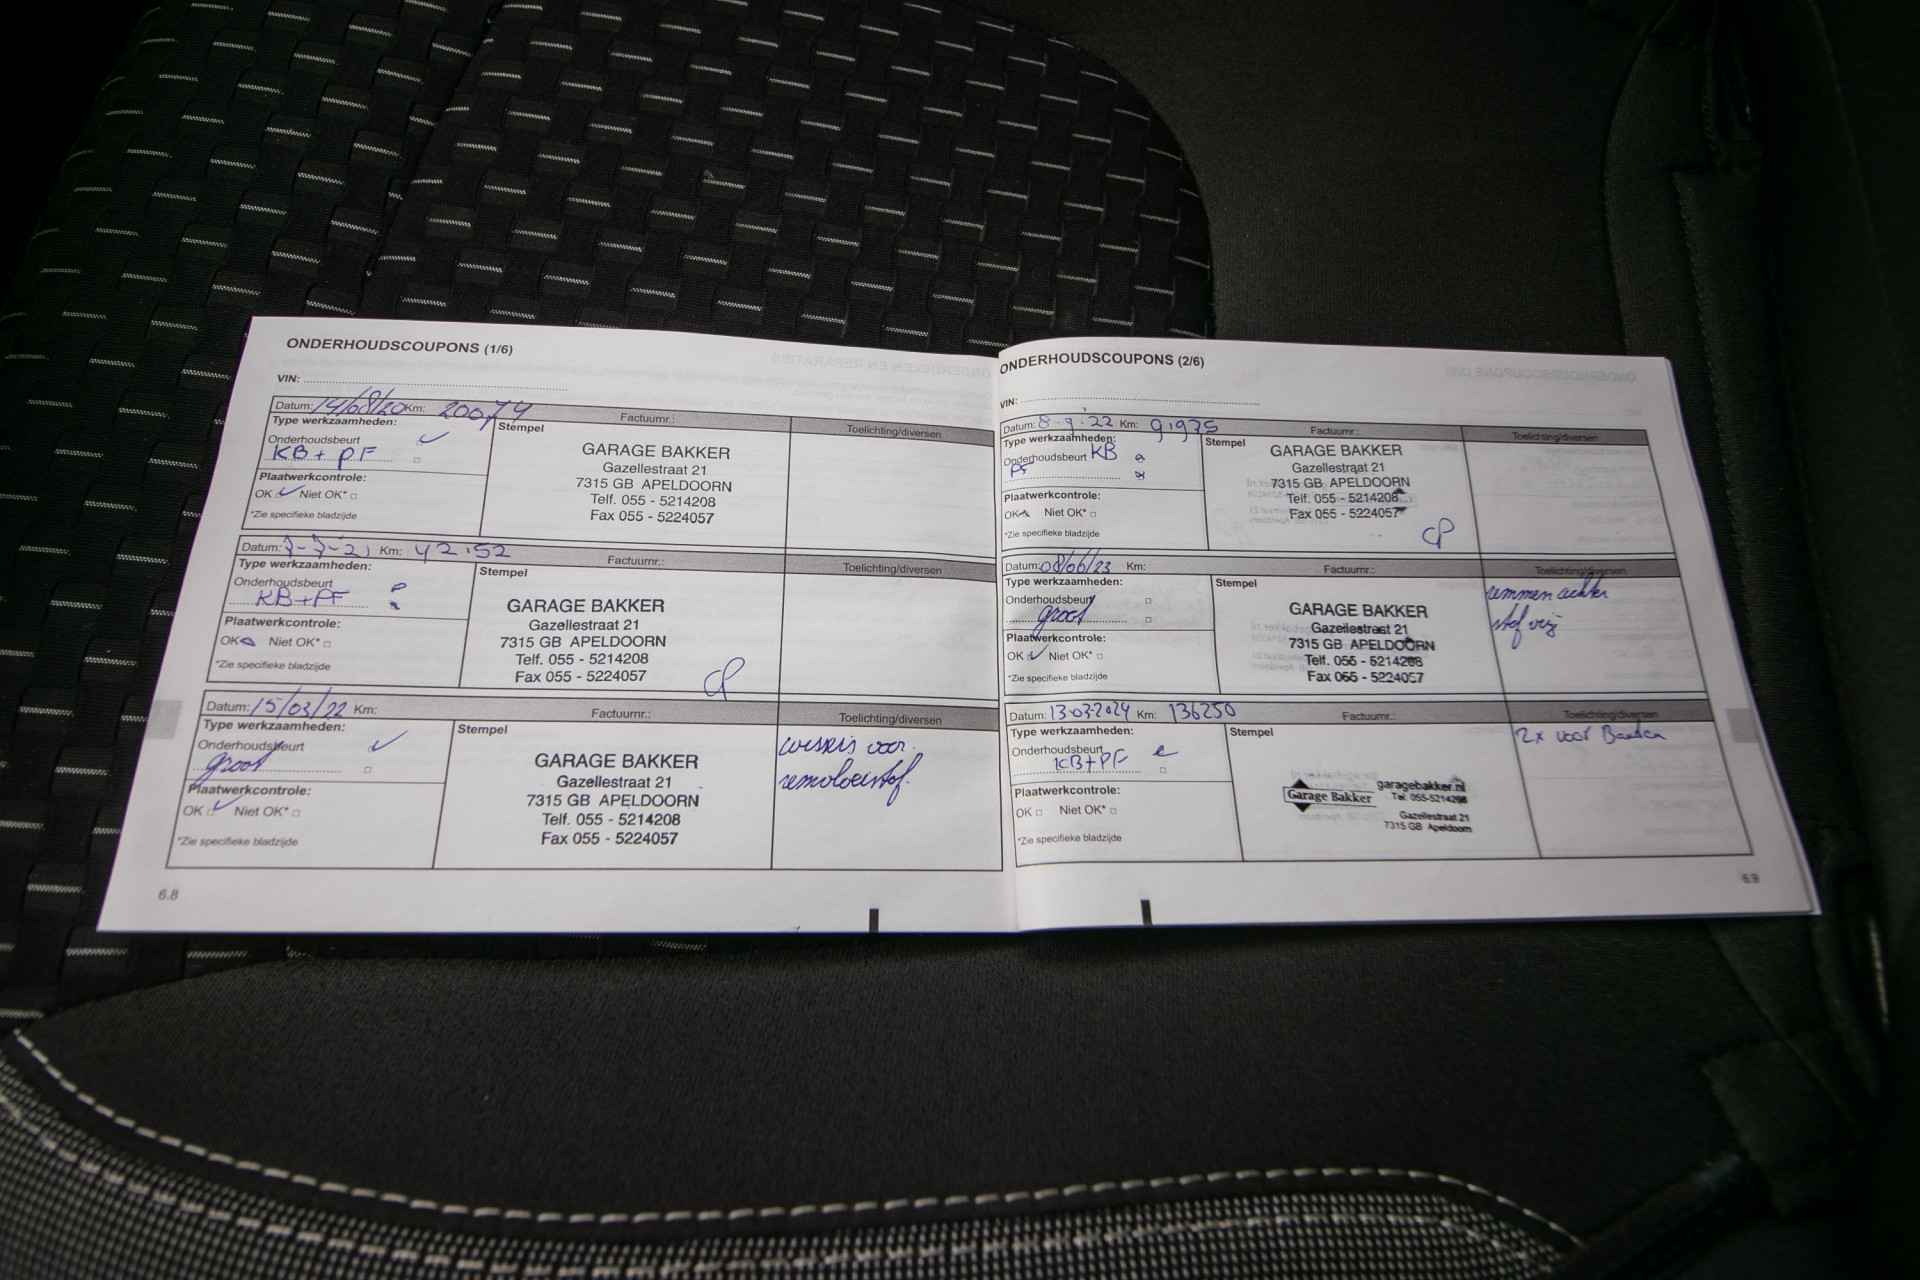 ONDERHOUDSCOUPONS (1/6)
VIN:
Datum: 14/08/20 Km: 20079 Factuurnr.: Toelichting/diversen
Type werkzaamheden: Stempel
Onderhoudsbeurt
KB + PF
Plaatwerkcontrole:
OK Niet OK*
*Zie specifieke bladzijde
GARAGE BAKKER
Gazellestraat 21
7315 GB APELDOORN
Telf. 055 - 5214208
Fax 055 - 5224057
Datum: Km: Factuurnr.: Toelichting/diversen
Type werkzaamheden: Stempel
Onderhoudsbeurt
KB+PF
Plaatwerkcontrole:
OK Niet OK*
*Zie specifieke bladzijde
GARAGE BAKKER
Gazellestraat 21
7315 GB APELDOORN
Telf. 055 - 5214208
Fax 055 - 5224057
Datum: 15/03/22 Km: Factuurnr.: Toelichting/diversen
Type werkzaamheden: Stempel
Onderhoudsbeurt
groot
Plaatwerkcontrole:
OK Niet OK*
*Zie specifieke bladzijde
GARAGE BAKKER
Gazellestraat 21
7315 GB APELDOORN
Telf. 055 - 5214208
Fax 055 - 5224057
voor
remvloeistof.
6.8
ONDERHOUDSCOUPONS (2/6)
VIN:
Datum: 8-9-'22 Km: 91975 Factuurnr.: Toelichting/diversen
Type werkzaamheden: Stempel
Onderhoudsbeurt KB
PF
Plaatwerkcontrole:
OK Niet OK*
*Zie specifieke bladzijde
GARAGE BAKKER
Gazellestraat 21
7315 GB APELDOORN
Telf. 055 - 5214208
Fax 055 - 5224057
Datum: 08/06/23 Km: Factuurnr.: Toelichting/diversen
Type werkzaamheden: Stempel
Onderhoudsbeurt
groot
Plaatwerkcontrole:
OK Niet OK*
*Zie specifieke bladzijde
GARAGE BAKKER
Gazellestraat 21
7315 GB APELDOORN
Telf. 055 - 5214208
Fax 055 - 5224057
remmen achter
stof vrij
Datum: 13-03-2024 Km: 136250 Factuurnr.: Toelichting/diversen
Type werkzaamheden: Stempel
Onderhoudsbeurt
KB+PF
Plaatwerkcontrole:
OK Niet OK*
*Zie specifieke bladzijde
Garage Bakker
garagebakker.nl
Tel. 055-5214208
Gazellestraat 21
7315 GB Apeldoorn
2x voor Banden
6.9